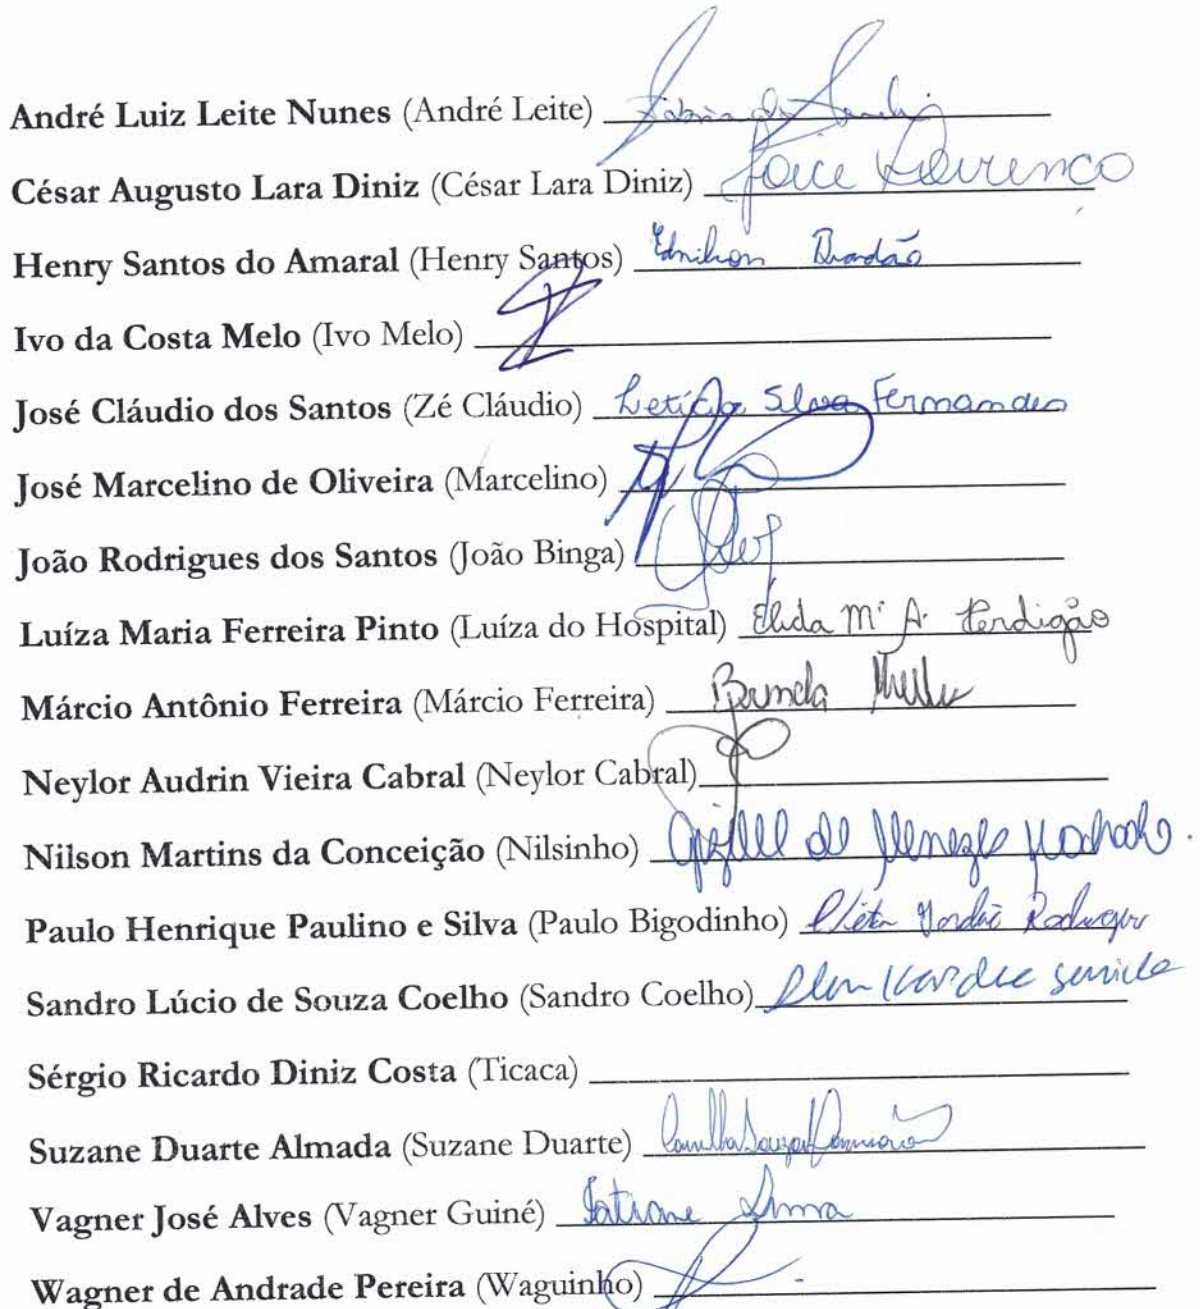 André Luiz Leite Nunes (André Leite)
César Augusto Lara Diniz (César Lara Diniz) Joice Lourenço
Henry Santos do Amaral (Henry Santos) Ednilson Brandão
Ivo da Costa Melo (Ivo Melo)
José Cláudio dos Santos (Zé Cláudio) Letícia Silva Fernandes
José Marcelino de Oliveira (Marcelino)
João Rodrigues dos Santos (João Binga)
Luíza Maria Ferreira Pinto (Luíza do Hospital) Élida Mª A. Perdigão
Márcio Antônio Ferreira (Márcio Ferreira)
Neylor Audrin Vieira Cabral (Neylor Cabral)
Nilson Martins da Conceição (Nilsinho) de Menezes Machado.
Paulo Henrique Paulino e Silva (Paulo Bigodinho)
Sandro Lúcio de Souza Coelho (Sandro Coelho)
Sérgio Ricardo Diniz Costa (Ticaca)
Suzane Duarte Almada (Suzane Duarte)
Vagner José Alves (Vagner Guiné) Tatiane Lima
Wagner de Andrade Pereira (Waguinho)